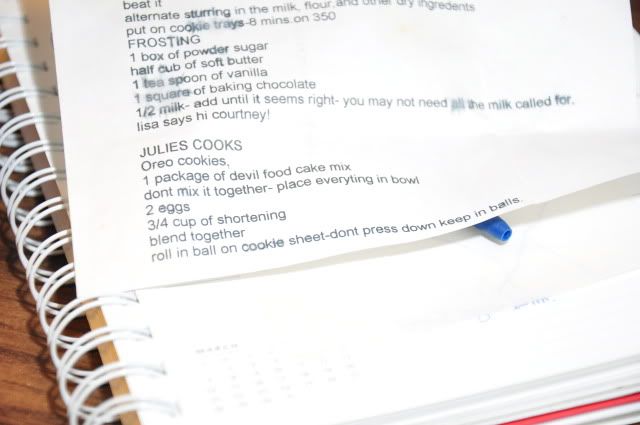 beat it
alternate sturring in the milk, flour,and other dry ingredents
put on cookie trays-8 mins.on 350
FROSTING
1 box of powder sugar
half cub of soft butter
1 tea spoon of vanilla
1 square of baking chocolate
1/2 milk- add until it seems right- you may not need all the milk called for.
lisa says hi courtney!
JULIES COOKS
Oreo cookies,
1 package of devil food cake mix
dont mix it together- place everyting in bowl
2 eggs
3/4 cup of shortening
blend together
roll in ball on cookie sheet-dont press down keep in balls.
MARCH